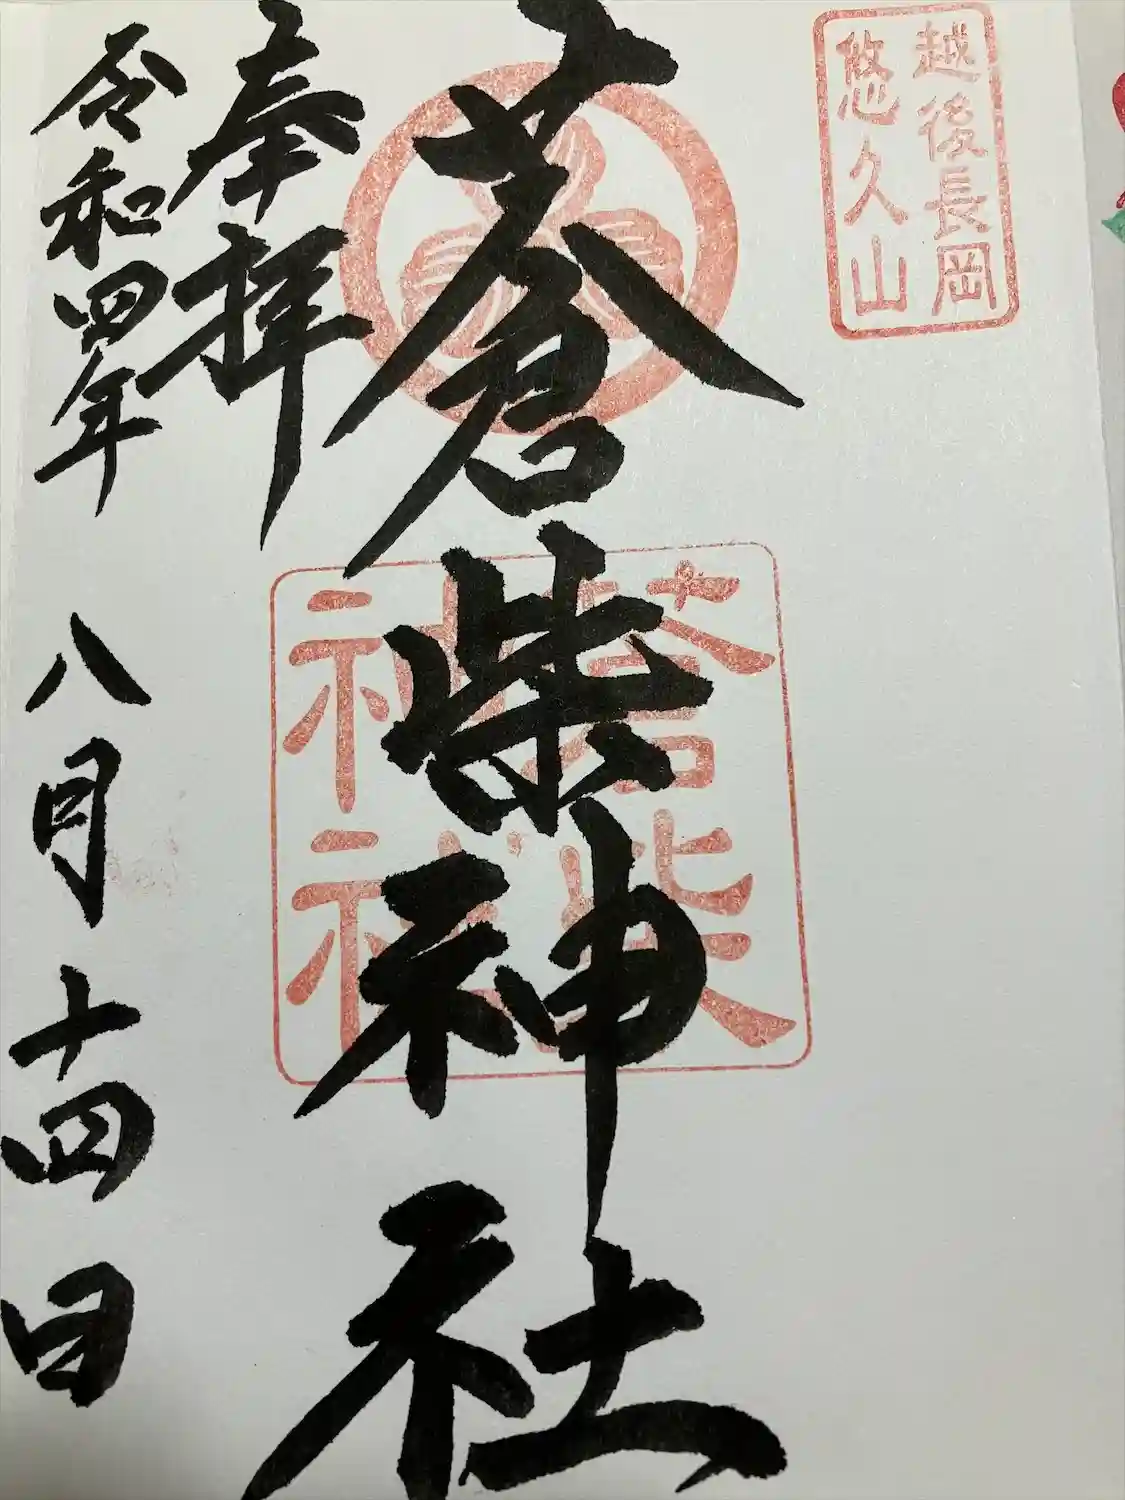 越後長岡
悠久山
蒼柴神社
蒼柴
神社
奉拝
令和四年 八月十四日